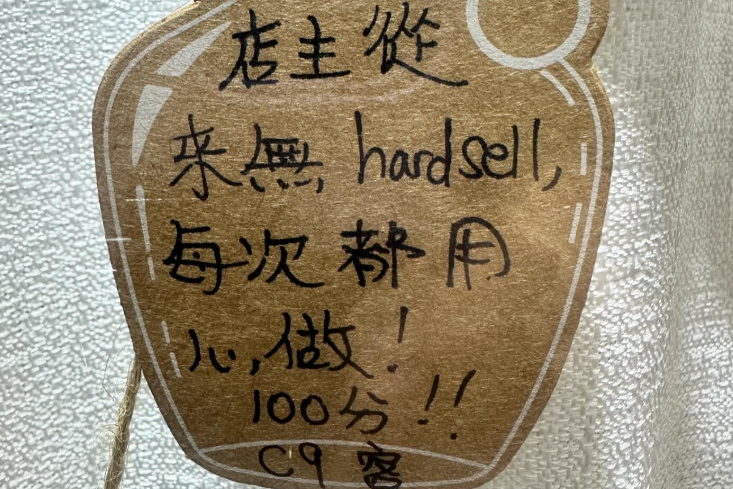 店主從
來無 hardsell,
每次都用
心,做!
100分!!
C9 客